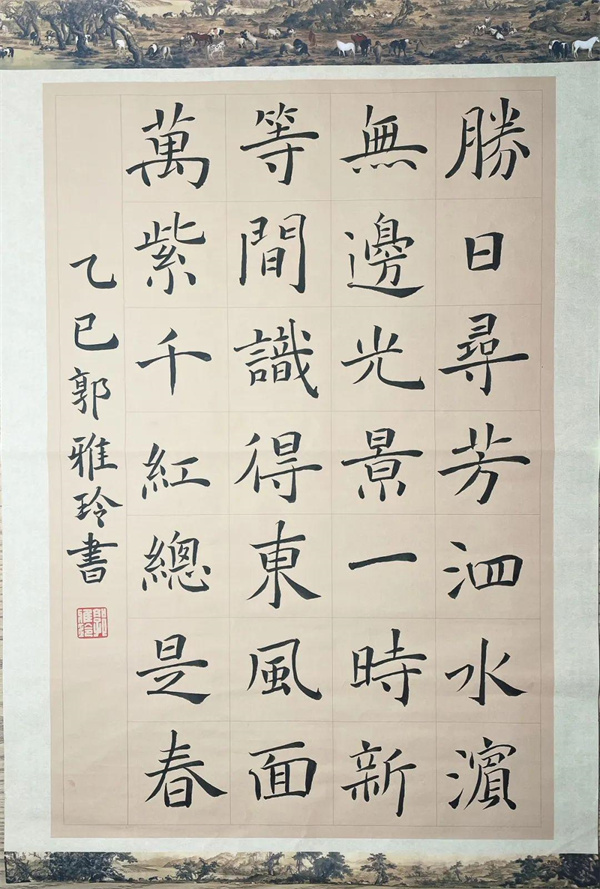 勝日尋芳泗水濱
無邊光景一時新
等間識得東風面
萬紫千紅總是春
乙巳郭雅玲書